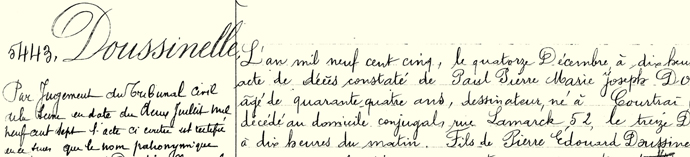 5443, Doussinelle
Par Jugement du Tribunal Civil
de la Seine en date du deux Juillet mil
neuf cent sept l'acte ci contre est rectifié
en ce sens que le nom patronymique
L'an mil neuf cent cinq, le quatorze Décembre à dix heu
acte de décès constaté de Paul Pierre Marie Joseph DO
âgé de quarante quatre ans, dessinateur, né à Courtrai
décédé au domicile conjugal, rue Lamarck 52, le treize D
à dix heures du matin. Fils de Pierre Edouard Doussine